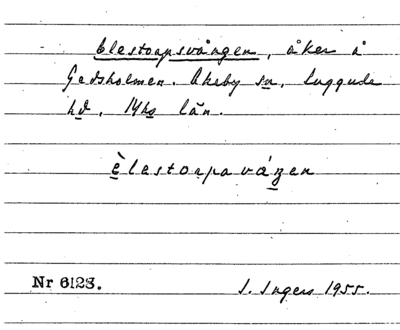 Elestorpsvången, åker å
Gedsholmen. Ekeby sn, Luggude
hd, Mhs län.
è̱lestorpavåŋen
Nr 6128. I. Ingers 1955.